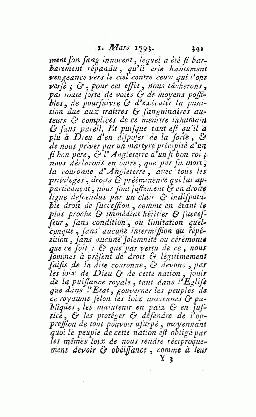 1. Mars 1593. 391
ment son sang innocent, lequel a été si bar-
barement répandu, qu'il crie hautement
vengeance vers le ciel contre ceux qui l'ont
versé ; &, pour cet effet, nous tâcherons,
par toute sorte de voies & de moyens possi-
bles, de poursuivre & d'exécuter la puni-
tion due aux traîtres & sanguinaires au-
teurs & complices de ce meurtre inhumain
& sans pareil. Et puisque tant est qu'il a
plû à Dieu d'en disposer de la sorte, &
de nous priver par un martyre précipité d'un
si bon pere, & l'Angleterre d'un si bon roi ;
nous déclarons en outre, que par sa mort,
la couronne d'Angleterre, avec tous les
privileges, droits & prééminences qui lui ap-
partiennent, nous sont justement & en droite
ligne dévolus par un clair & indisputa-
ble droit de succession, comme en étant le
plus proche & immédiat héritier & succes-
seur, sans condition, ou limitation quel-
conque, sans aucune intermission ou répé-
tition, sans aucune solemnité ou cérémonie
que ce soit : & que par vertu de ce, nous
sommes à présent de droit & légitimement
saisis de la dite couronne, & devons, par
les loix de Dieu & de cette nation, jouir
de la puissance royale, tant dans l'Eglise
que dans l'Etat, gouverner les peuples de
ce royaume selon les loix anciennes & pu-
bliques, les maintenir en paix & en jus-
tice, & les protéger & défendre de l'op-
pression de tout pouvoir usurpé, moyennant
quoi le peuple de cette nation est obligé par
les mêmes loix de nous rendre réciproque-
ment devoir & obéissance, comme à leur
Y 3